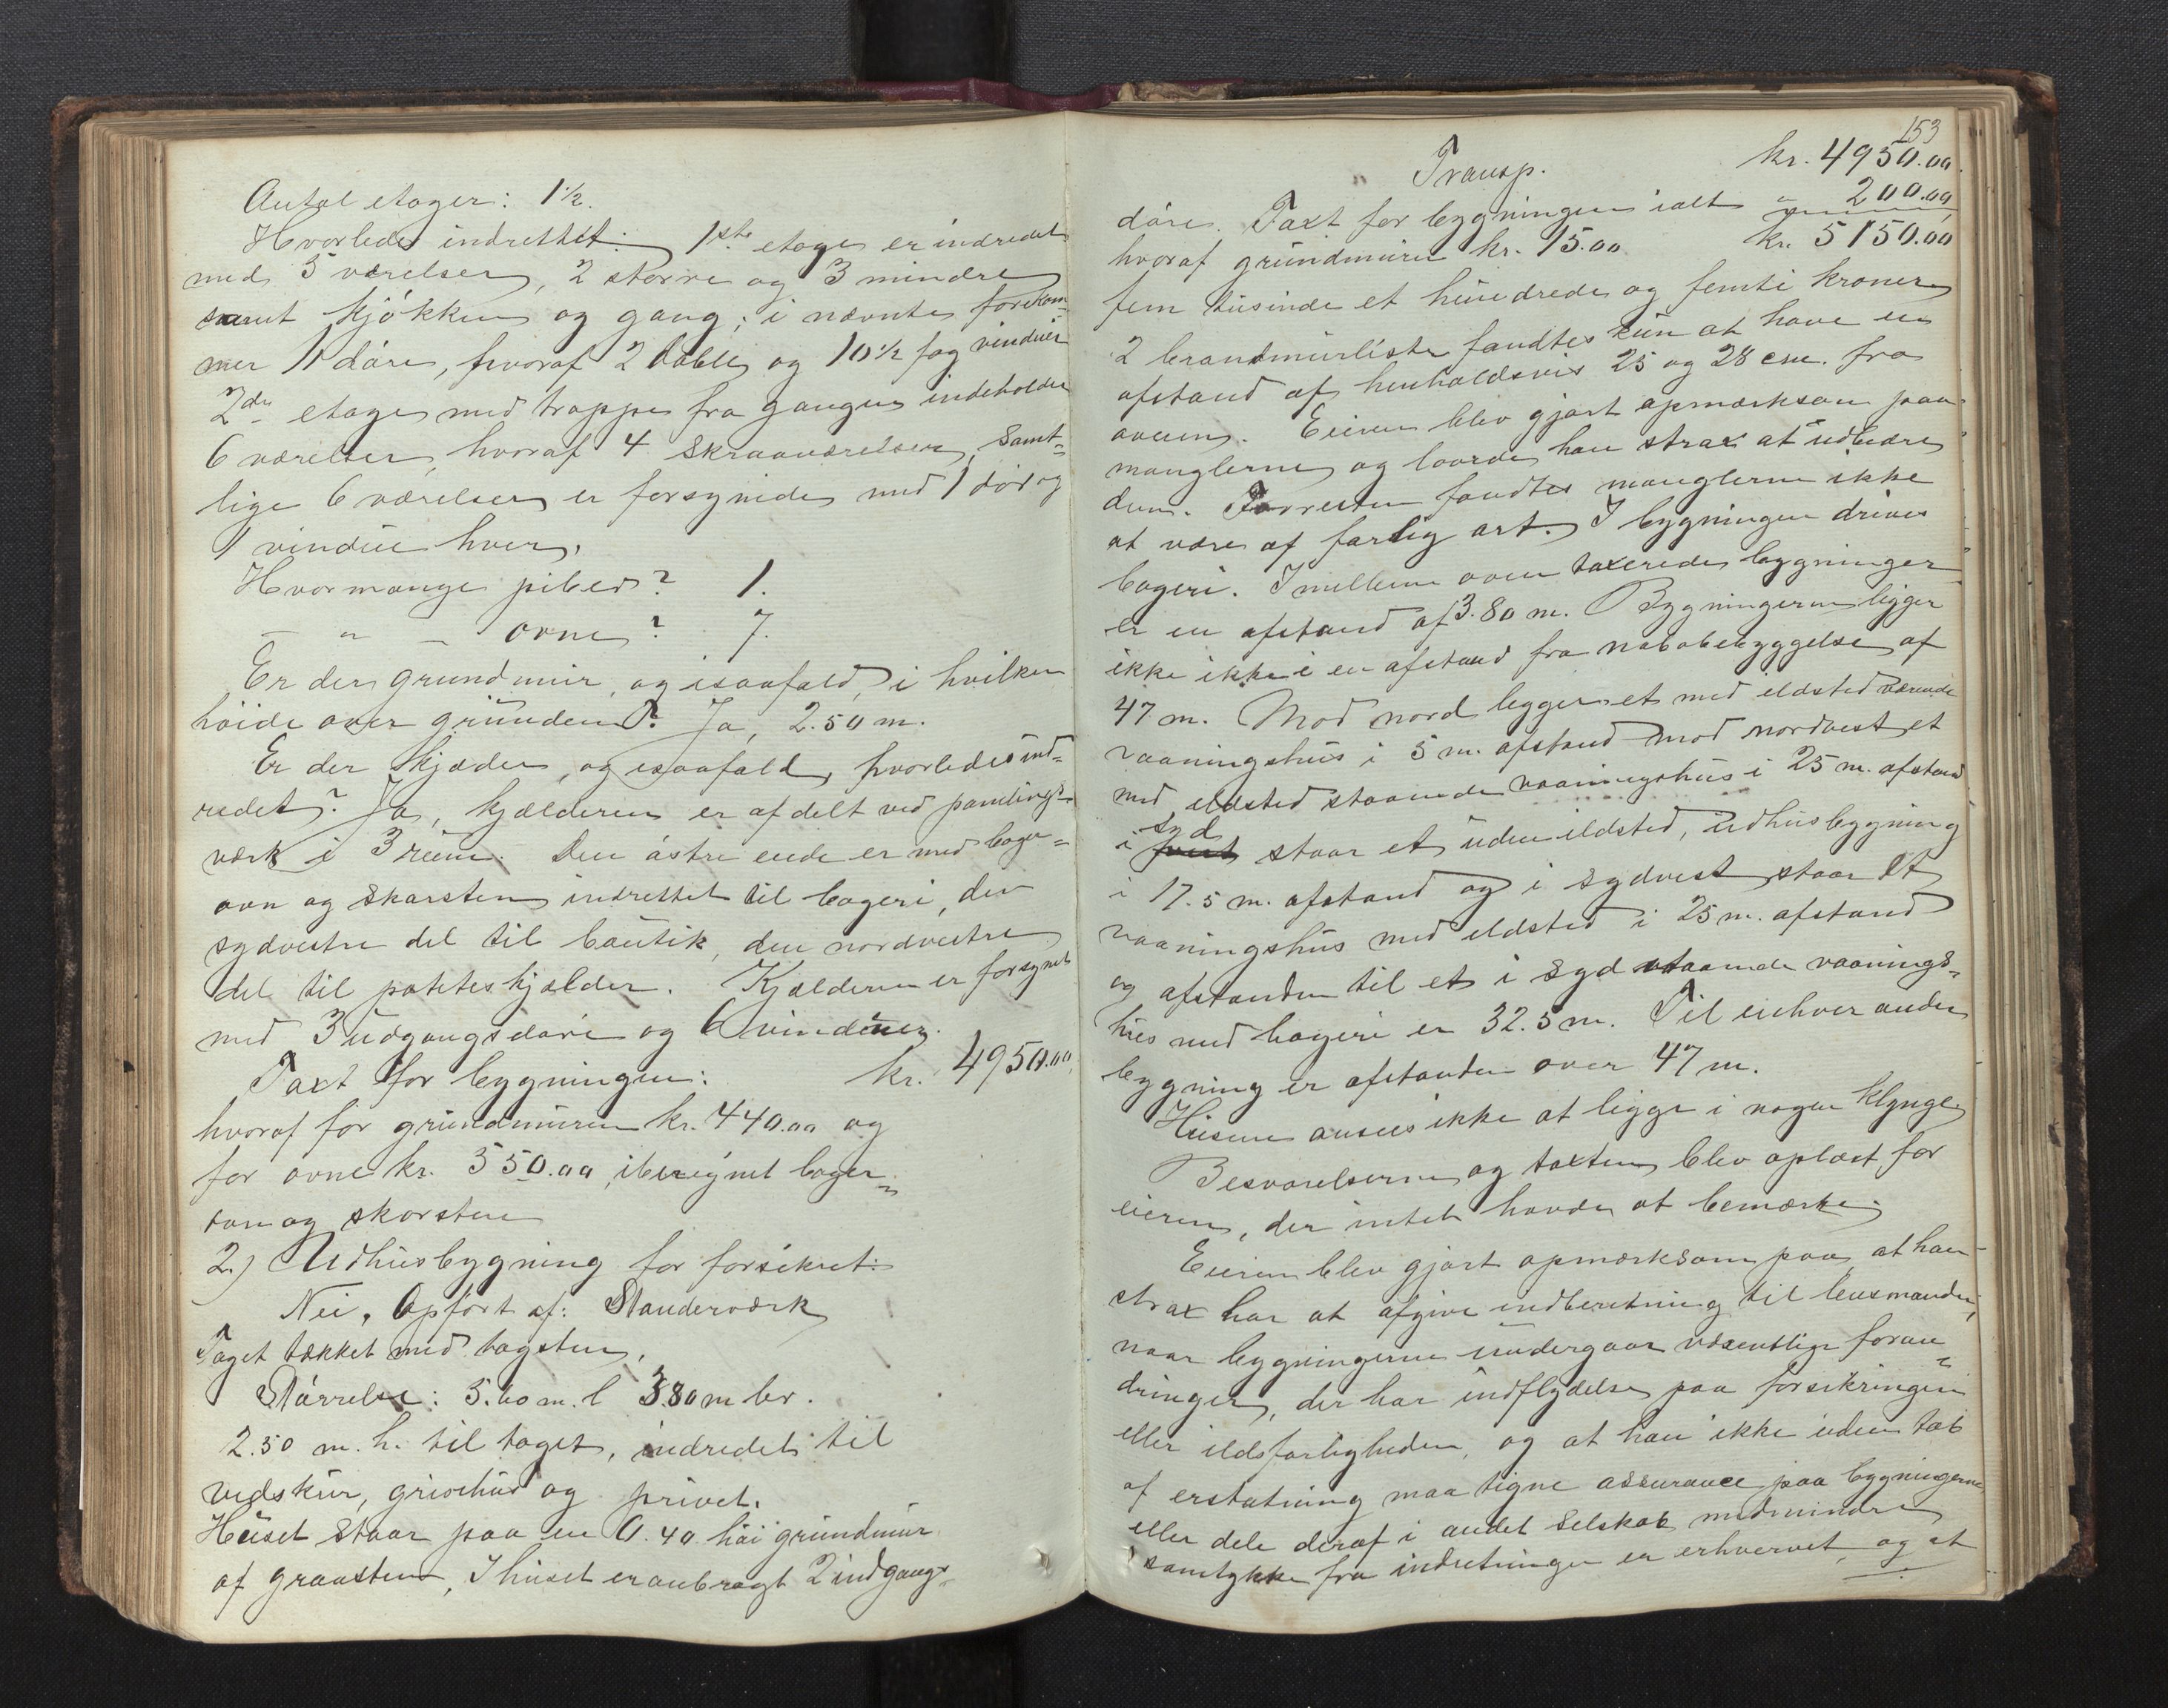 Antal etager: 1½.
Hvorledes indrettet: 1ste etage er indredet
med 5 værelser, 2 større og 3 mindre
samt kjøkken og gang; i nævnte forekom-
mer 11 døre, hvoraf 2 doble og 10½ fag vinduer
2den etage med trappe fra gangen indeholder
6 værelser, hvoraf 4 skraaværelser, samt=
lige 6 værelser er forsynede med 1 dør og
1 vindue hver.
Hvormange piber? 1.
— „ — ovne? 7.
Er der grundmur, og isaafald, i hvilken
høide over grunden? Ja, 2.50 m.
Er der kjælder, og isaafald, hvorledes ind=
redet? Ja, kjælderen er afdelt ved panelings=
værk i 3 rum. Den østre ende er med bager=
ovn og skorsten indrettet til bageri, den
sydvestre del til butik, den nordvestre
del til poteteskjælder. Kjælderen er forsynet
med 3 udgangsdøre og 6 vinduer.
Taxt for bygningen: kr. 4950.00
hvoraf for grundmuren kr. 440.00 og
for ovne kr. 550.00, iberegnet bager=
ovn og skorsten
2.) Udhusbygning før forsikret:
Nei, Opført af: Standerværk
Taget tækket med tagsten,
Størrelse: 5.60 m. l 3.80 m br.
2.50 m. h. til taget, indredet til
vedskur, grisehus og privet.
Huset staar paa en 0.40 høi grundmur
af graasten, I huset er anbragt 2 indgangs=
153
Transp. kr. 4950.00
døre. Taxt for bygningen ialt „ 200.00
hvoraf grundmuren kr. 15.00. kr. 5150.00
fem tusinde et hundrede og femti kroner
2 brandmurlister fandtes kun at have en
afstand af henholdsvis 25 og 28 cm. fra
ovnen. Eieren blev gjort opmærksom paa
manglerne og lovede han strax at udbedre
dem. Forresten fandtes manglerne ikke
at være af farlig art. I bygningen drives
bageri. Imellem oven taxerede bygninger
er en afstand af 3.80 m. Bygningerne ligger
ikke ikke i en afstand fra nabobebyggelse af
47 m. Mod nord ligger et med ildsted værende
vaaningshus i 5 m. afstand mod nordvest et
med ildsted staaende vaaningshus i 25 m. afstand
syd
i staar et uden ildsted, udhusbygning
i 17.5 m. afstand og i sydvest staar et
vaaningshus med ildsted i 25 m. afstand
og afstanden til et i syd staaende vaanings=
hus med bageri er 32.5 m. Til enhver anden
bygning er afstanden over 47 m.
Husene ansees ikke at ligge i nogen klynge
Besvarelserne og taxten blev oplæst for
eieren, der intet havde at bemærke.
Eieren blev gjort opmærksom paa, at han
strax har at afgive indberetning til lensmanden,
naar bygningerne undergaar væsentlige foran=
dringer, der har indflydelse paa forsikringen
eller ildsfarligheden, og at han ikke uden tab
af erstatning maa tegne assurance paa bygningerne
eller dele deraf i andet selskab medmindre
samtykke fra indretningen er erhvervet, og at